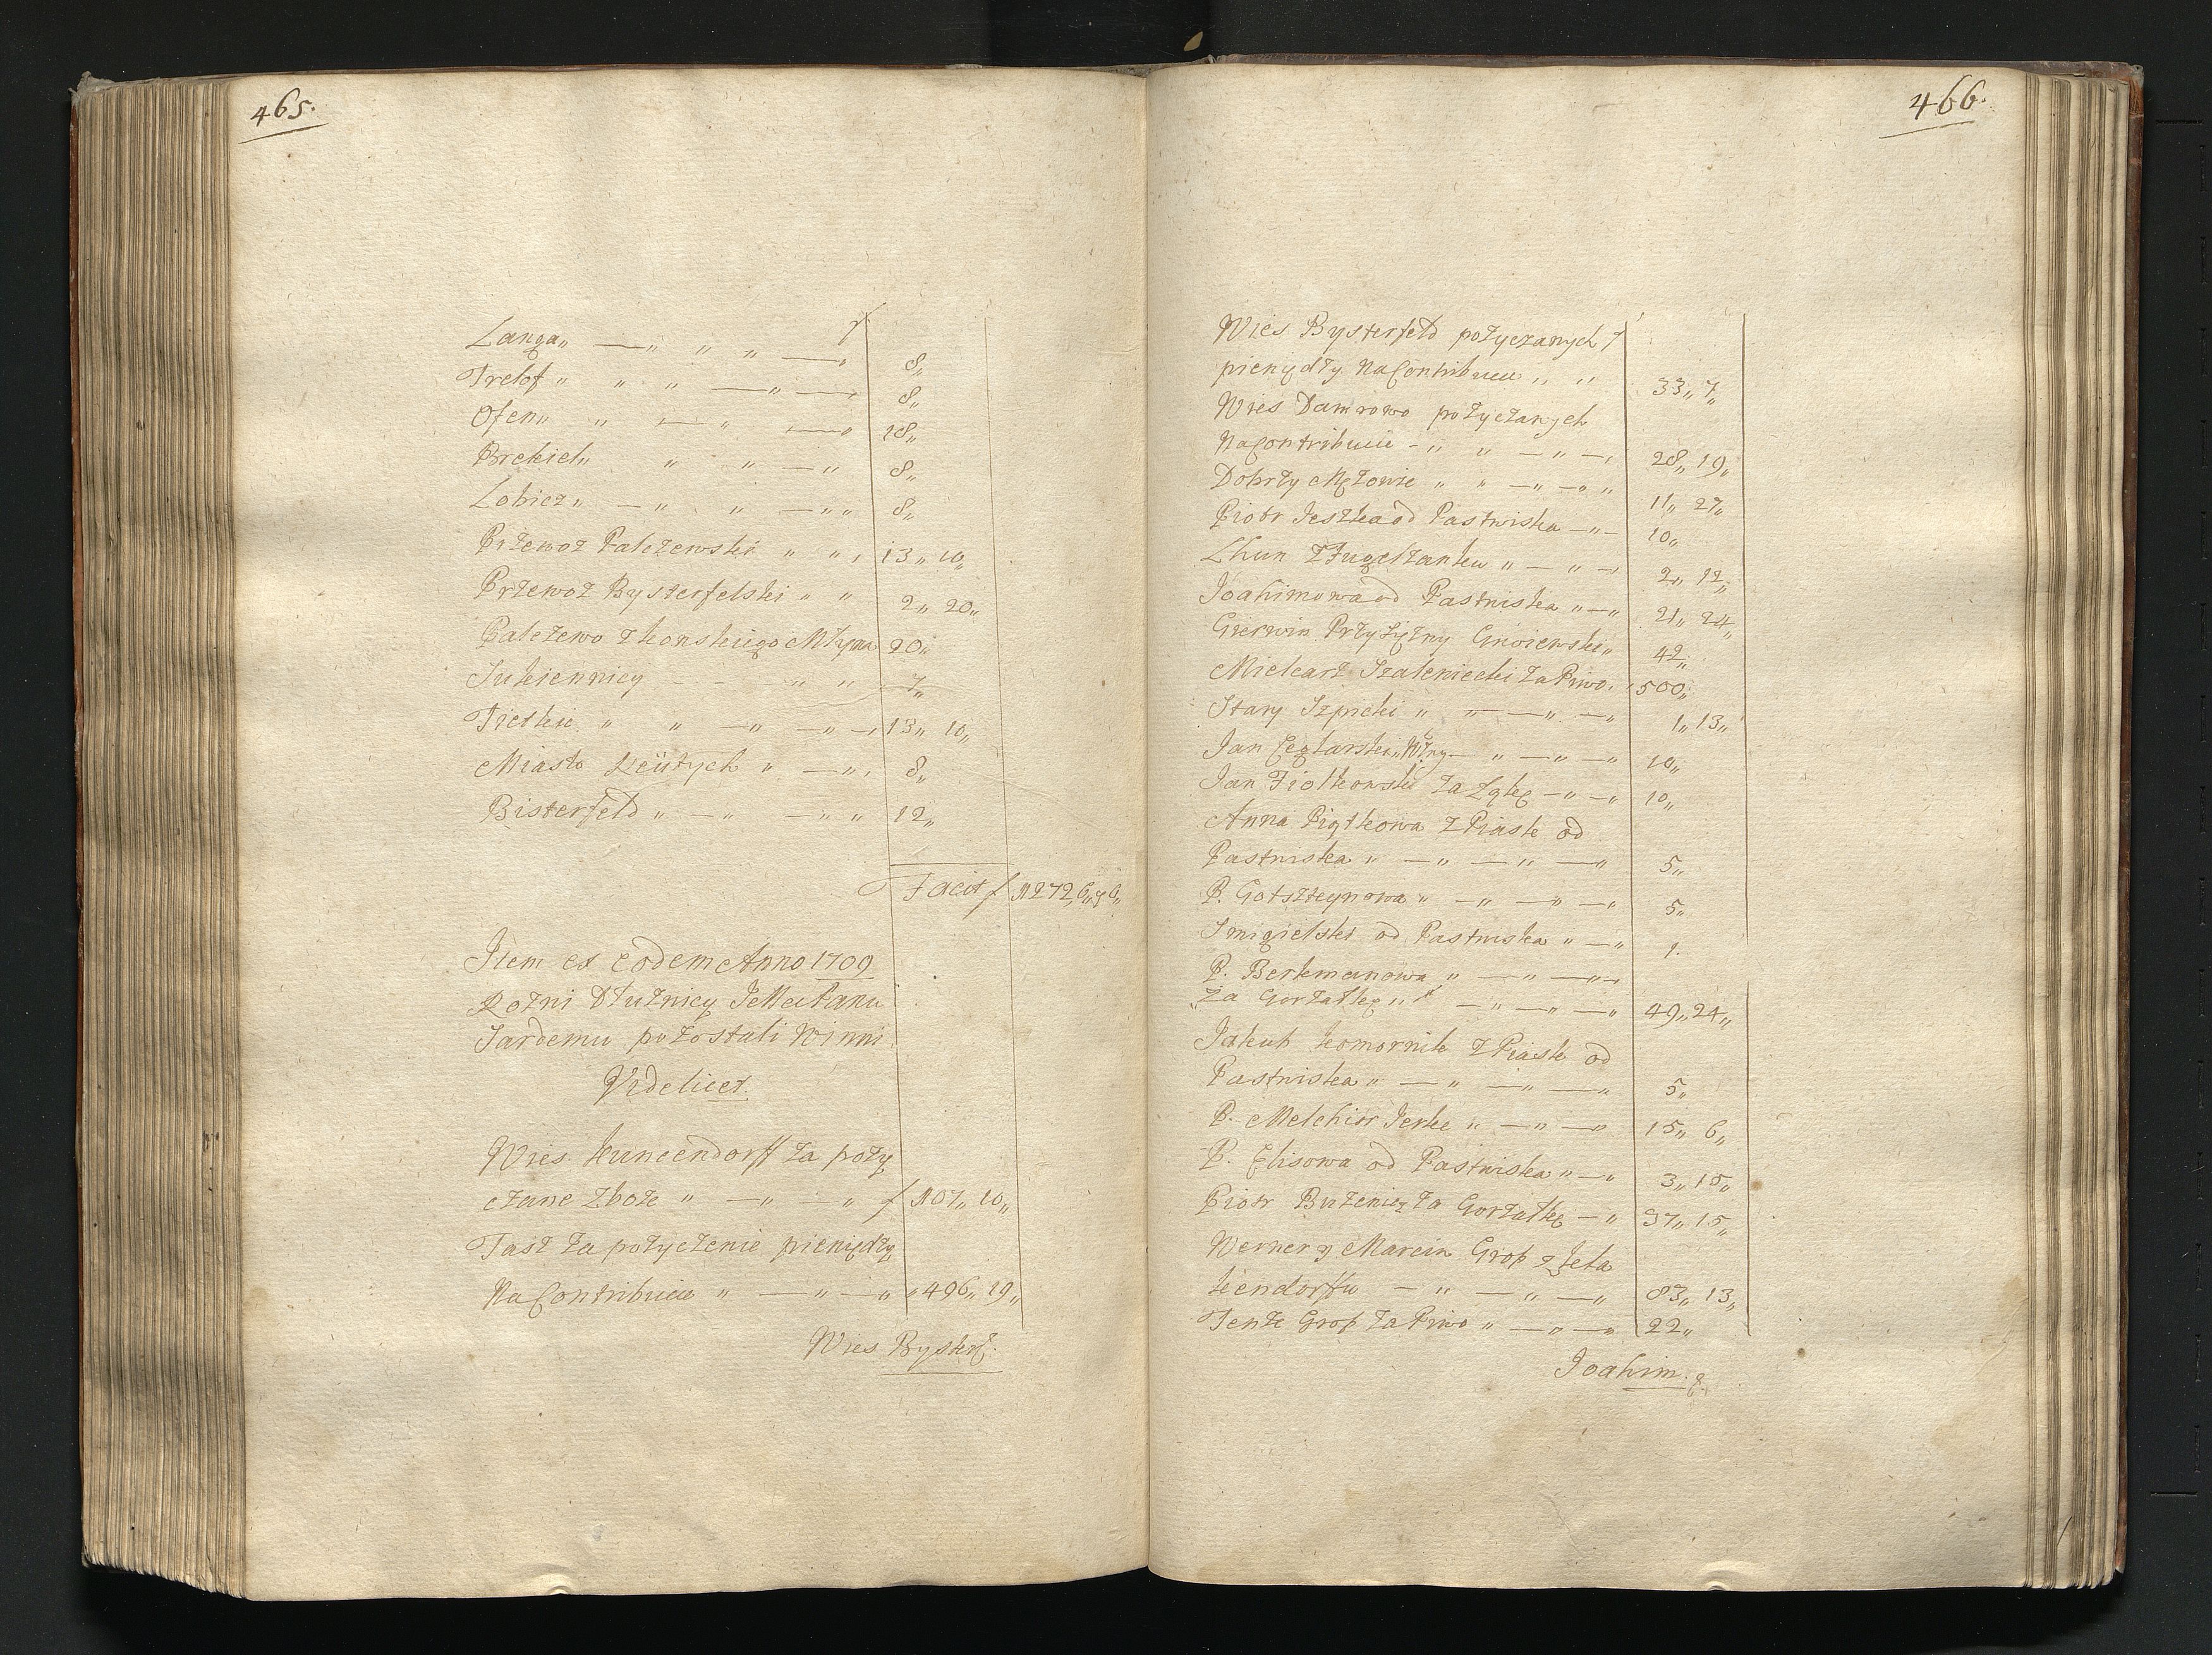 465.
Langa „ — „ „ „ — „ f 8„
Trelof „ „ „ — „ — „ 8„
Ofen „ „ — „ — „ 18„
Brekiel „ „ „ — „ 8„
Lobiez „ — „ „ — „ „ 8„
Przewoz Palczewski „ „ „ 13„ 10„
Przewoz Bysterfelski „ „ 2„ 20„
Palczewo z konskiego Młyna 20„
Sukiennicy - - „ „ 7„
Tietkie „ „ — „ — „ — 13„ 10„
Miasto „ — „ 8„
Bisterfeld „ — „ — „ „ 12„
Facit f 1272„ 6„
Item ex eodem Anno 1709
Rozni Dłuznicy JeMci Panu
Jardemu pozostali Winni
Videlicet.
Wies Kuncendorff za poży
czane Zboze „ — „ — „ f 107„ 10„
Taż za pożyczenie pieniędzy
Na Contribucie „ — „ — „ 496„ 19„
Wies Bysterf.
466.
Wies Bysterfeld pożyczanych f
pieniędzy Na Contribucie „ „ 33„ 7„
Wies Damrowo pożyczanych
Na Contribucie - „ „ — „ — 28„ 19„
Dobrzy Mężowie „ „ — „ — „ „ 11„ 27„
Piotr Jeszka od Pastwiska — „ — 10„
Lhun „ — „ — 2„ 12„
Joahimowa od Pastwiska „ — „ 21„ 24„
Gierwin Przysiężny Gnoiewski „ 42„
Mielcarz Szaleniecki za Piwo. 500„
Stary Szpicki „ „ — — „ — „ 1„ 13„
Jan Ceglarski — „ — „ — „ 10„
Jan Fiołkowski za Łąkę — „ — „ 10„
Anna Piątkowa z Piask od
Pastwiska „ — „ — „ — „ 5„
P. Gotszteynowa „ — „ — „ — „ 5„
Smigielski od Pastwiska „ — „ 1.
P. Berkmanowa „ — „ — „
za Gorzałkę „ „ — „ — „ — „ 49„ 24„
Jakub komornik z Piask od
Pastwiska „ — „ — „ — „ 5„
P. Melchior Jerke „ — „ — „ 15„ 6„
P. Elisowa od Pastwiska „ — „ 3„ 15„
Piotr za Gorzałkę — „ 37„ 15„
Werner y Marcin Grop z
kendorffu — „ — „ — „ 83„ 13„
Tenże Grop za Piwo „ — „ — „ 22„
Joahim.